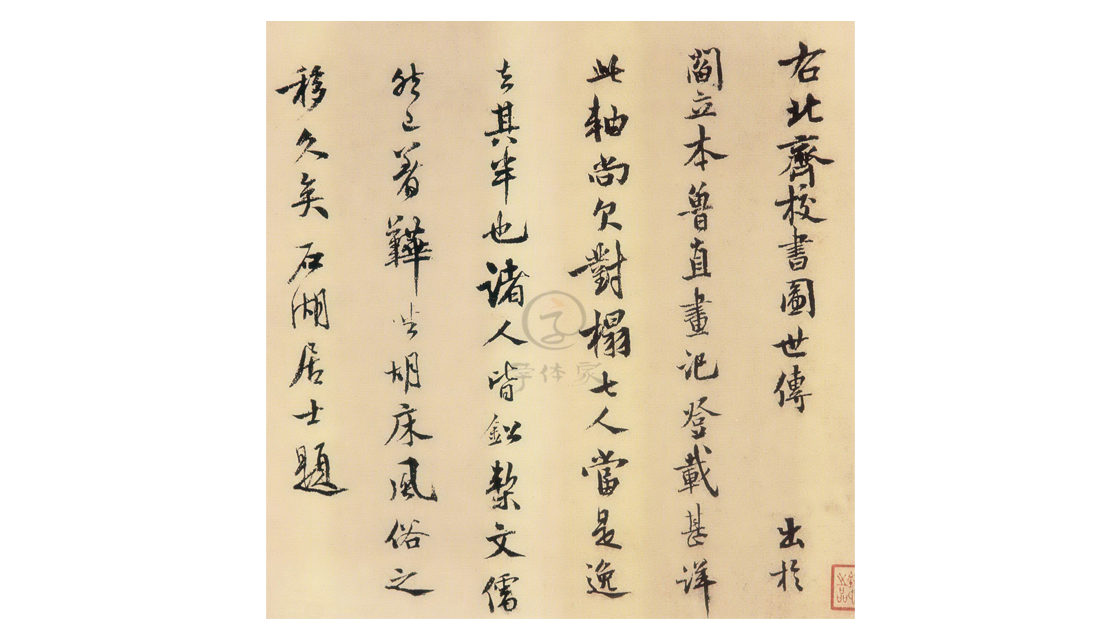 右北齊校書圖世傳 出於
閻立本魯直畫記登載甚詳
此軸尚欠對榻七人當是逸
去其半也諸人皆鉛槧文儒
然已著鞾坐胡床風俗之
移久矣石湖居士題
字体家